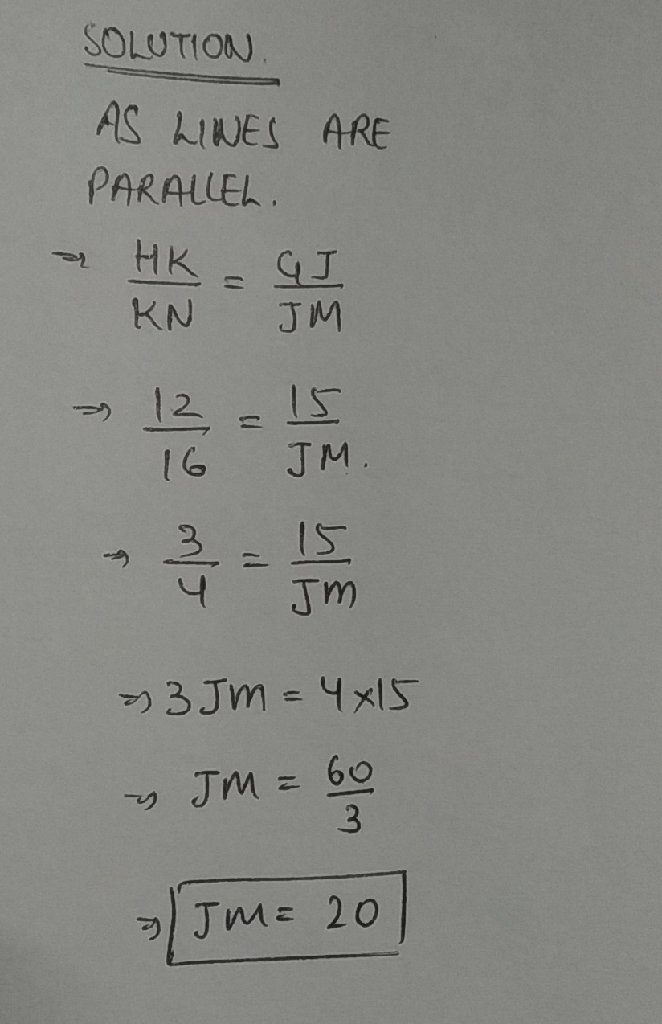 SOLUTION.
AS LINES ARE
PARALLEL.
⇒ HK/KN = GJ/JM
⇒ 12/16 = 15/JM.
⇒ 3/4 = 15/JM
⇒ 3 JM = 4×15
⇒ JM = 60/3
⇒ JM = 20